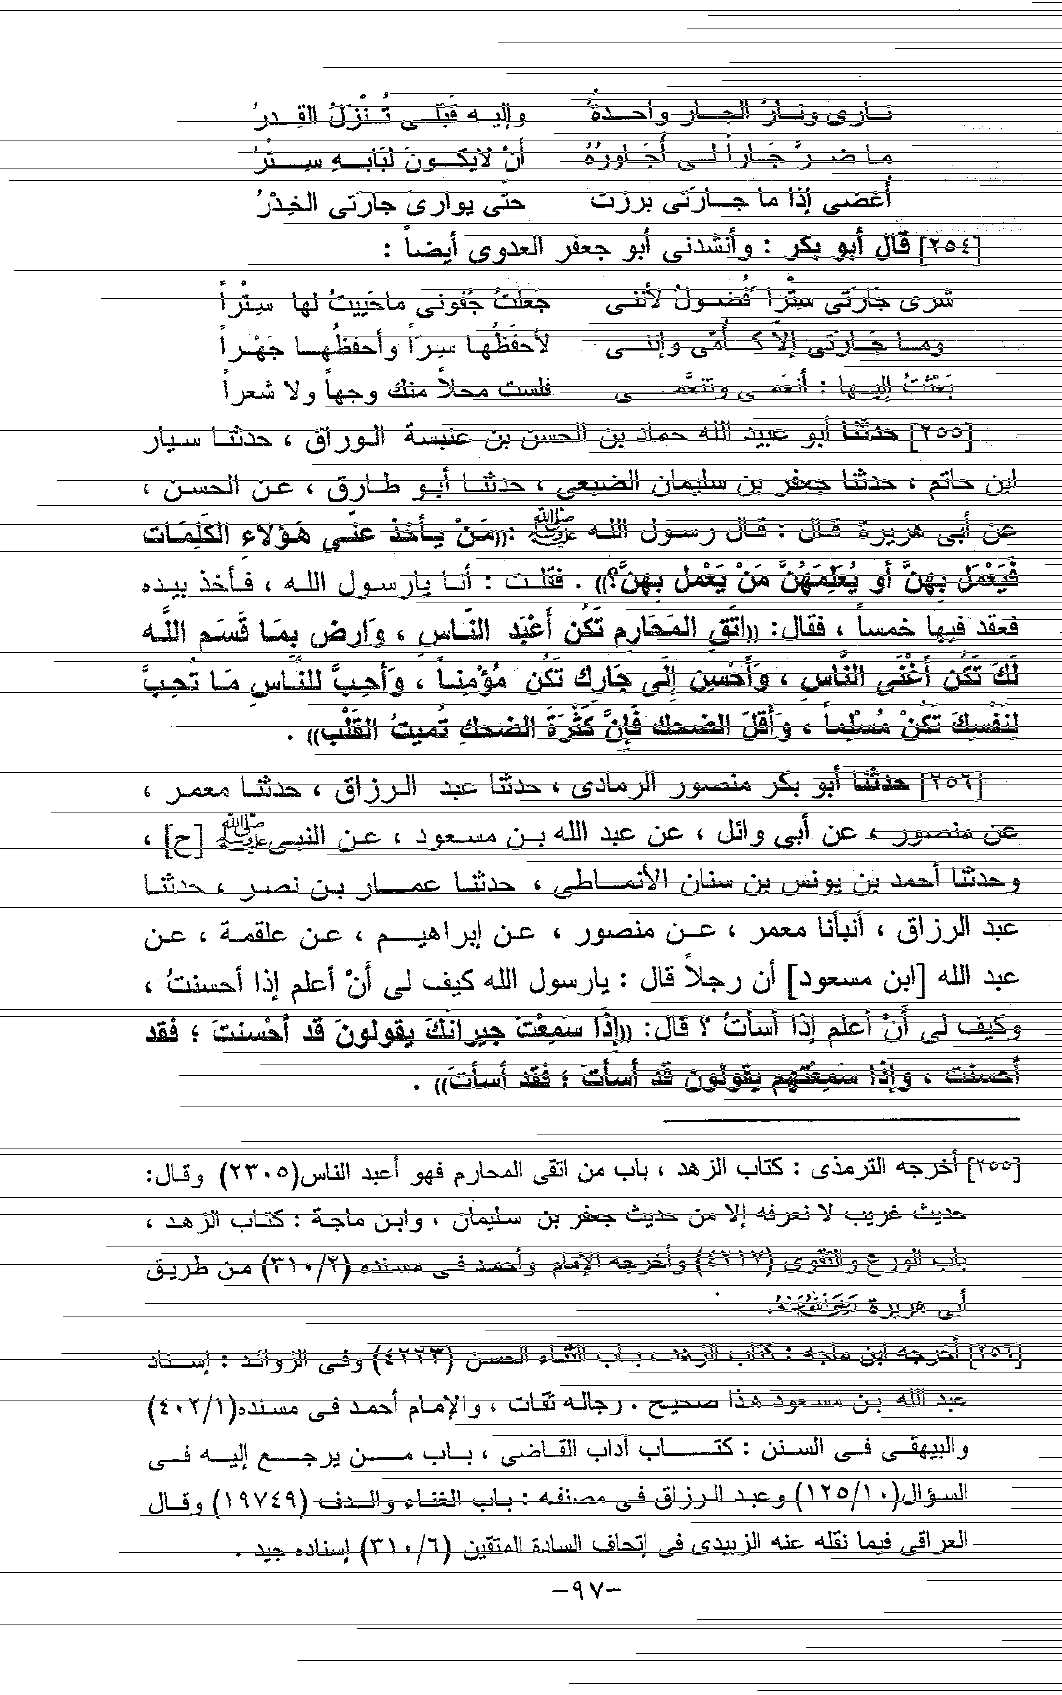 نارى ونارُ الجار واحدةٌ وإليه قَبْلى تُنْزَلُ القِدرُ
ما ضرَّ جَاراً لى أُجَاورُهُ أنْ لايكونَ لبَابهِ سِتْرُ
أُغضى إذا ما جارتى برزت حتّى يوارى جارتى الخِدْرُ
[٢٥٤] قال أبو بكر : وأنشدنى أبو جعفر العدوى أيضاً :
شرى جَارَتى سِتْراً فُضولُ لأننى جعلتُ جُفونى ماحَييتُ لها سِتْراً
وما جَارَتى إلاَّ كأُمّى وإننى لأحفَظُها سِرَاً وأحفظُها جَهْراً
بَعَثتُ إليها : أنعَمى وتنعَّمى فلست محلاً منك وجهاً ولا شعراً
[٢٥٥] حدثنا أبو عبيد الله حماد بن الحسن بن عنبسة الوراق ، حدثنا سيار
ابن حاتم ، حدثنا جعفر بن سليمان الضبعى ، حدثنا أبو طارق ، عن الحسن ،
عن أبى هريرة قال : قال رسول الله ﷺ :((مَنْ يأخذ عنّى هَؤلاءِ الكَلِمَات
فَيَعْمَل بِهنَّ أو يُعَلِمَهُنَّ مَنْ يَعْمل بِهنَّ؟)) . فقلت : أنا يارسول الله ، فأخذ بيده
فعقد فيها خمساً ، فقال: ((اتَق المَحارم تَكُن أعْبَد النّاس ، وَارض بمَا قَسَم اللَّه
لَكَ تَكُن أغْنَى النَّاس ، وَأحْسِن إلَى جَارِك تَكُن مُؤْمِناً ، وَأحِبَّ للنَّاس مَا تُحِبَّ
لنَفْسِكَ تَكُنْ مُسْلِماً ، وَأقلَ الضحك فَإنَّ كَثْرَةَ الضحكِ تُميتُ القَلْب)) .
[٢٥٦] حدثنا أبو بكر منصور الرمادى ، حدثنا عبد الرزاق ، حدثنا معمر ،
عن منصور ، عن أبى وائل ، عن عبد الله بن مسعود ، عن النبى ﷺ [ح] ،
وحدثنا أحمد بن يونس بن سنان الأنماطى ، حدثنا عمار بن نصر ، حدثنا
عبد الرزاق ، أنبأنا معمر ، عن منصور ، عن إبراهيم ، عن علقمة ، عن
عبد الله [ابن مسعود] أن رجلاً قال : يارسول الله كيف لى أنْ أعلم إذا أحسنتُ ،
وكيف لى أَنْ أعلم إذَا أسأتُ ؟ قال: ((إذَا سَمِعْتَ جيرانَكَ يقولونَ قَد أحْسنتَ ؛ فقَد
أحسنت ، وإذا سَمعتَهم يقولون قَد أسأتَ ؛ فقَد أسأتَ)) .
[٢٥٥] أخرجه الترمذى : كتاب الزهد ، باب من اتقى المحارم فهو أعبد الناس(٢٣٠٥) وقال:
حديث غريب لا نعرفه إلا من حديث جعفر بن سليمان ، وابن ماجة : كتاب الزهد ،
باب الورع والتقوى (٤٢١٧) وأخرجه الإمام وأحمد فى مسنده (٣١٠/٢) من طريق
أبى هريرة رضي الله عنه.
[٢٥٦] أخرجه ابن ماجه : كتاب الزهد، باب الثناء الحسن (٤٢٢٣) وفى الزوائد : إسناد
عبد الله بن مسعود هذا صحيح . رجاله ثقات ، والإمام أحمد فى مسنده(٤٠٢/١)
والبيهقى فى السنن : كتاب أداب القاضى ، باب من يرجع إليه فى
السؤال(١٢٥/١٠) وعبد الرزاق فى مصنفه : باب الغناء والدف (١٩٧٤٩) وقال
العراقى فيما نقله عنه الزبيدى فى إتحاف السادة المتقين (٣١٠/٦) إسناده جيد .
-٩٧-